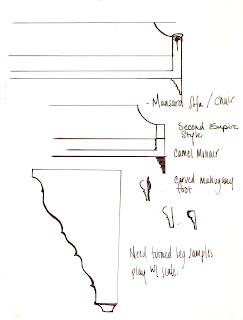 - Mansard Sofa / Chair
Second Empire
Style
Camel Mohair
Carved mahogany
foot
Need turned leg samples
play w/ scale.